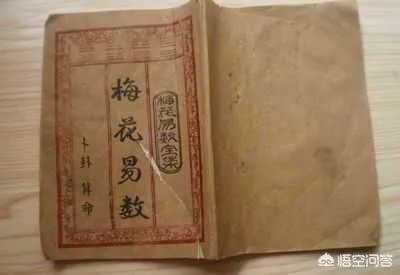 梅花易数全集
梅花易数
卜卦 算命
悟空问答